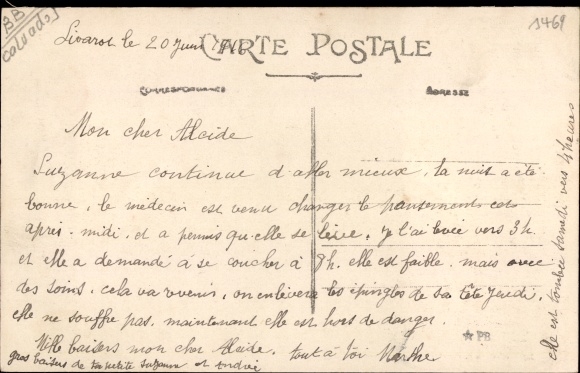 BB
calvados
1469
Livarot le 20 Juin 1916
CARTE POSTALE
CORRESPONDANCE
ADRESSE
Mon cher Alcide
Suzanne continue d'aller mieux, la nuit a été
bonne, le médecin est venu changer le pansement cet
après-midi, et a permis qu'elle se lève, je l'ai levée vers 3h.
et elle a demandé à se coucher à h. elle est faible, mais avec
des soins, cela va revenir, on enlèvera les épingles de sa tête Jeudi,
elle ne souffre pas, maintenant elle est hors de danger.
Mille baisers mon cher Alcide, tout à toi Marthe
gros baisers de ta petite Suzanne et
PB
elle est tombée samedi vers 4 heures